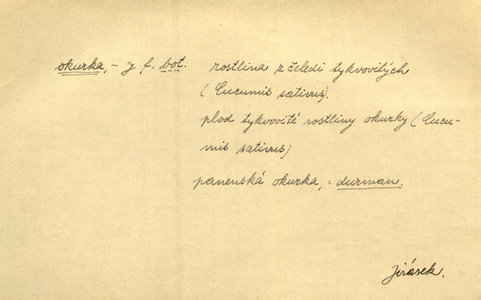 okurka, -y f. bot. rostlina z čeledi tykvovitých
(Cucumis sativus).
plod tykvovité rostliny okurky (Cucu-
mis sativus)
panenská okurka, : durman.
Jirásek.